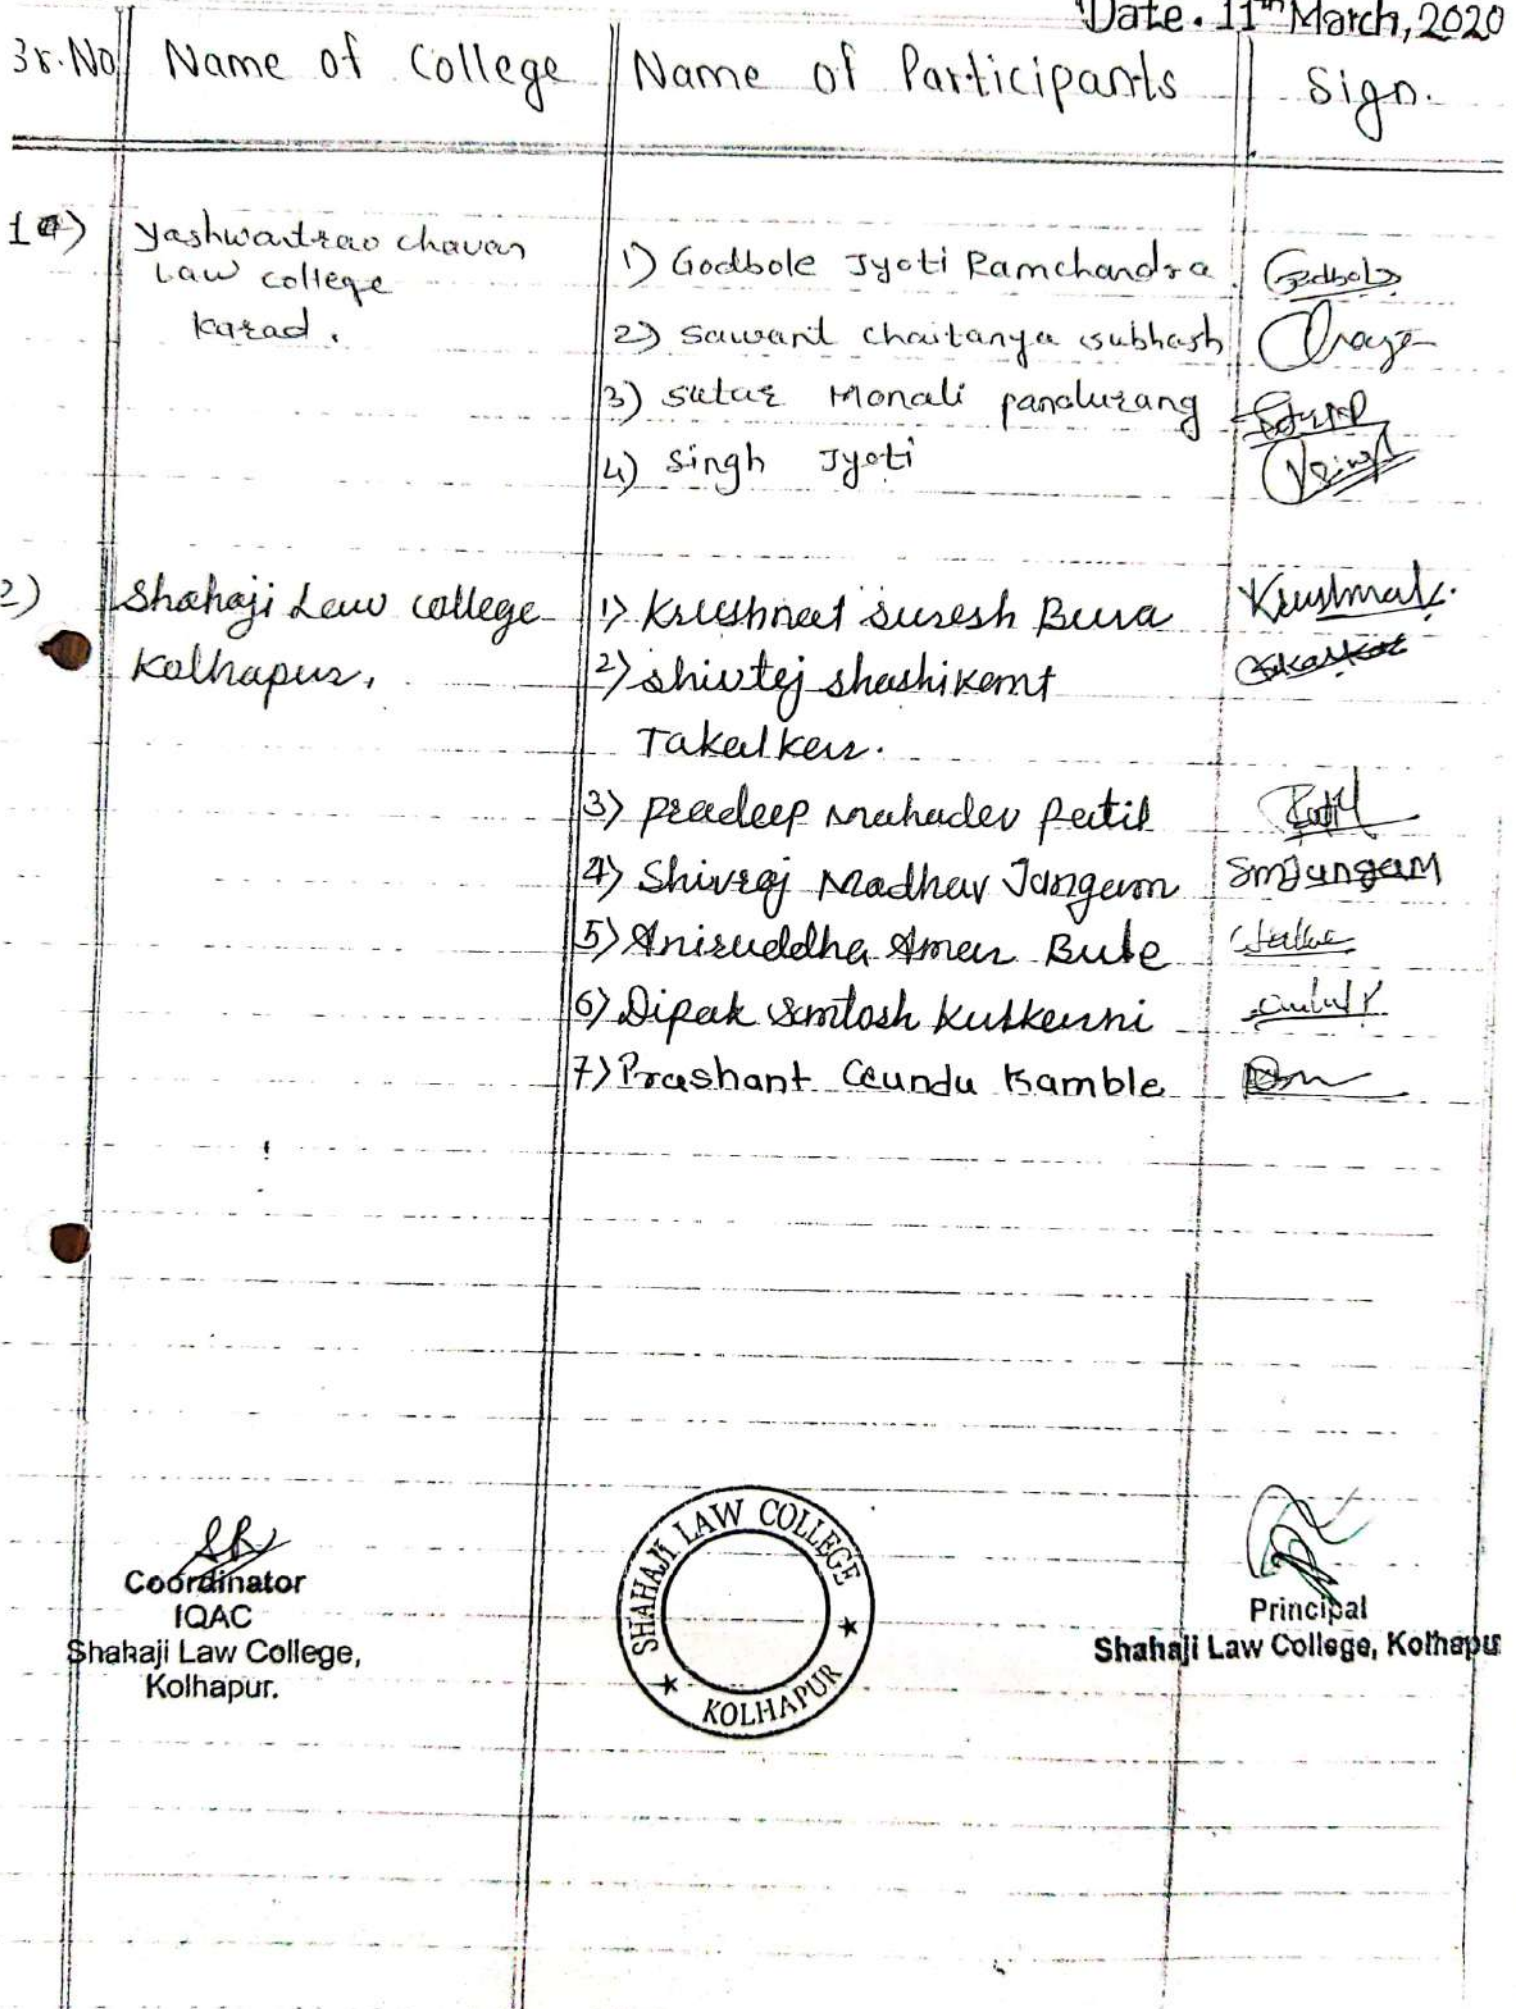 Date. 11th March, 2020
Sr.No Name of College Name of Participants Sign.
1) Yashwantrao chavan
Law college
Karad.
1) Godbole Jyoti Ramchandra Godbole
2) Sawant Chaitanya Subhash
3) Sutar Monali pandurang
4) Singh Jyoti
2) Shahaji Law college
Kolhapur.
1) Krushnat Suresh Bura
2) Shivtej Shashikant
Takalkar.
3) Pradeep Mahadev Patil Patil
4) Shivraj Madhav Jangam SmJangam
5) Aniruddha Amar Bute
6) Dipak Santosh Kulkarni
7) Prashant Gundu Kamble
SHAHAJI LAW COLLEGE
KOLHAPUR
Coordinator
IQAC
Shahaji Law College,
Kolhapur.
Principal
Shahaji Law College, Kolhapur